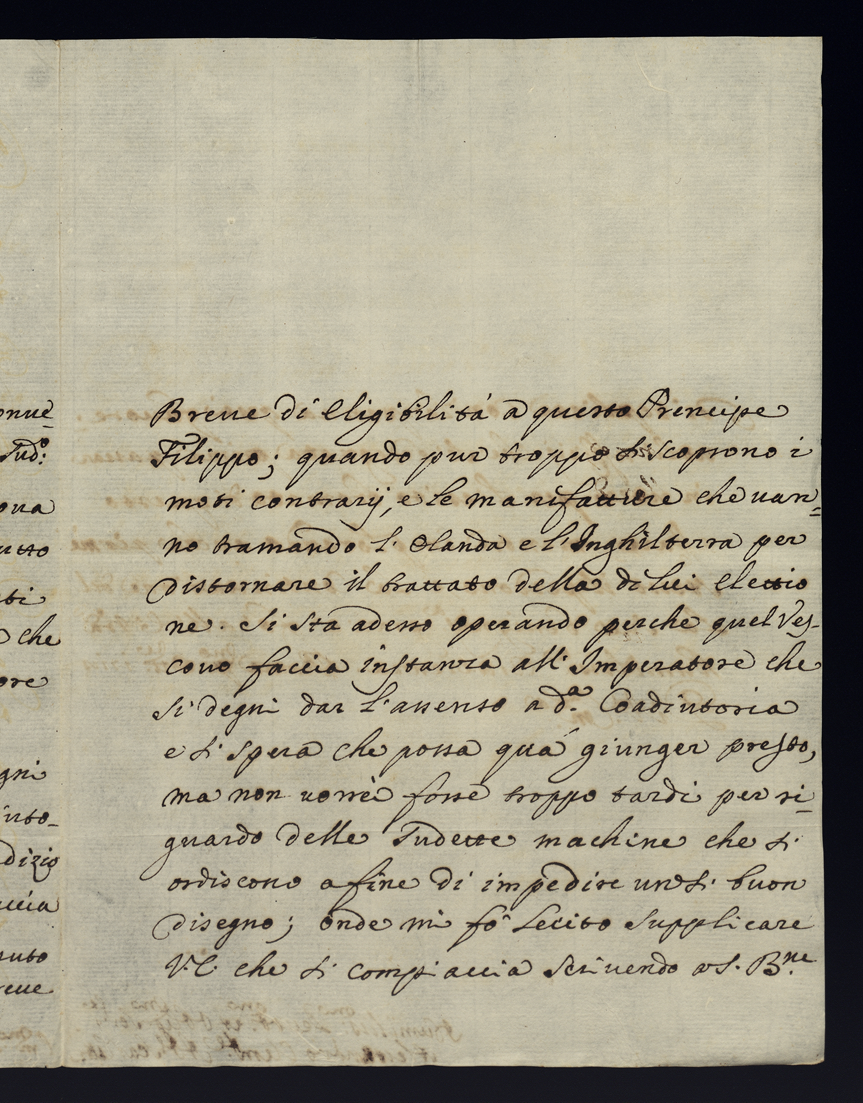 Breue di Eligibilitá a questo Prencipe
Filippo; quando pur troppo si scoprono i
moti contrarij, e le manifatture che uan=
no tramando l'Olanda e l'Inghilterra per
distornare il trattato della di lui Elettio
ne. Si sta adesso operando perche quel Ves-
couo faccia instanza all'Imperatore che
si degni dar l'assenso a d.ª Coadiutoria
e si spera che possa quá giunger presto,
ma non uorrei fosse troppo tardi per ri=
guardo delle sudette machine che si
ordiscono a fine di impedire un sì buon
disegno; onde mi fò lecito supplicare
V.E. che si compiaccia scriuendo a S. B.ne
onue=
sud.o:
oua
utto
ti
che
ore
gni
into-
dizio
accia
nuto
reue